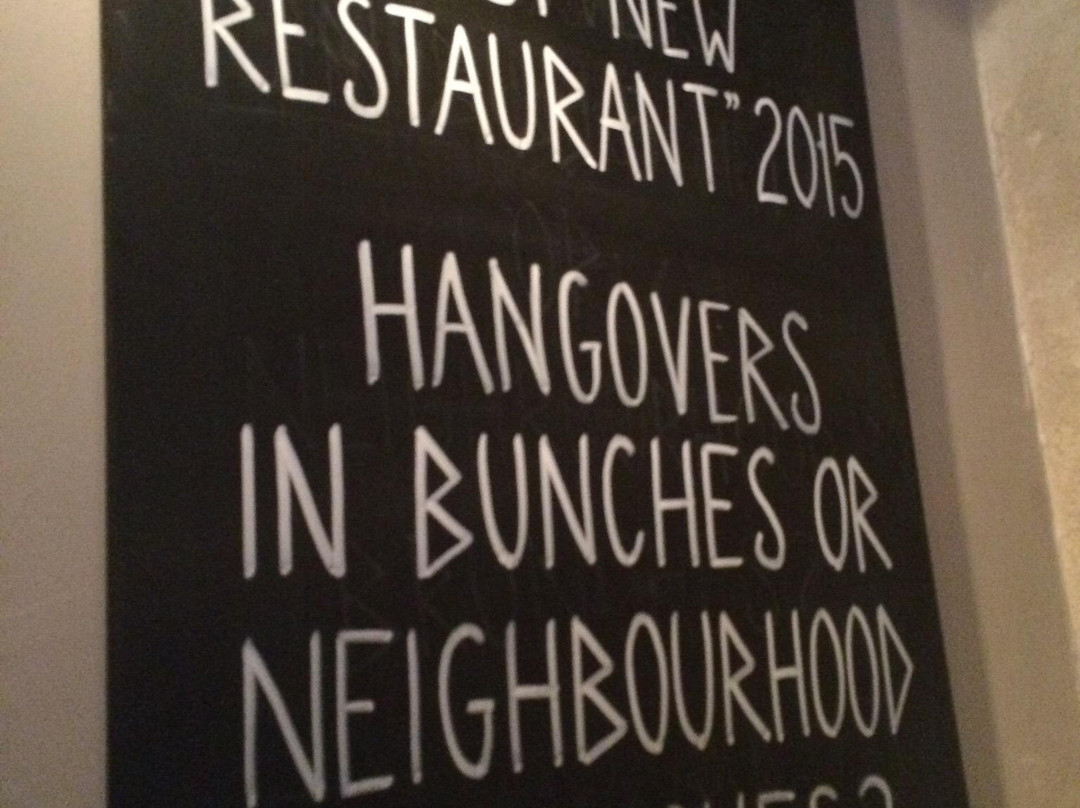 NEW
RESTAURANT" 2015
HANGOVERS
IN BUNCHES OR
NEIGHBOURHOOD